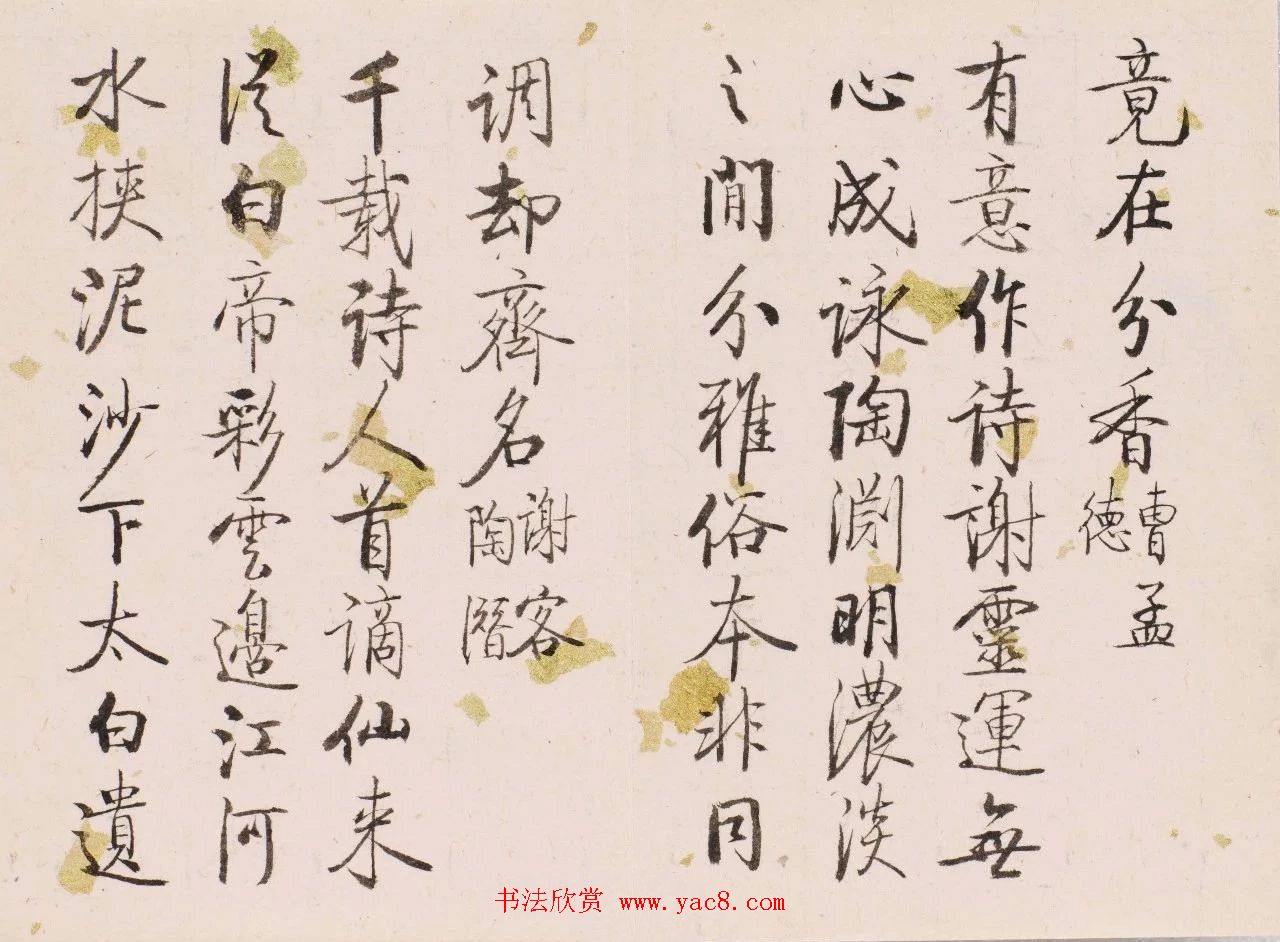 竟在分香曹孟德
有意作诗謝靈運無
心成詠陶渊明濃淡
之間分雅俗本非同
调却齊名謝客陶潛
千载诗人首谪仙来
從白帝彩雲邊江河
水挾泥沙下太白遺
书法欣赏 www.yac8.com